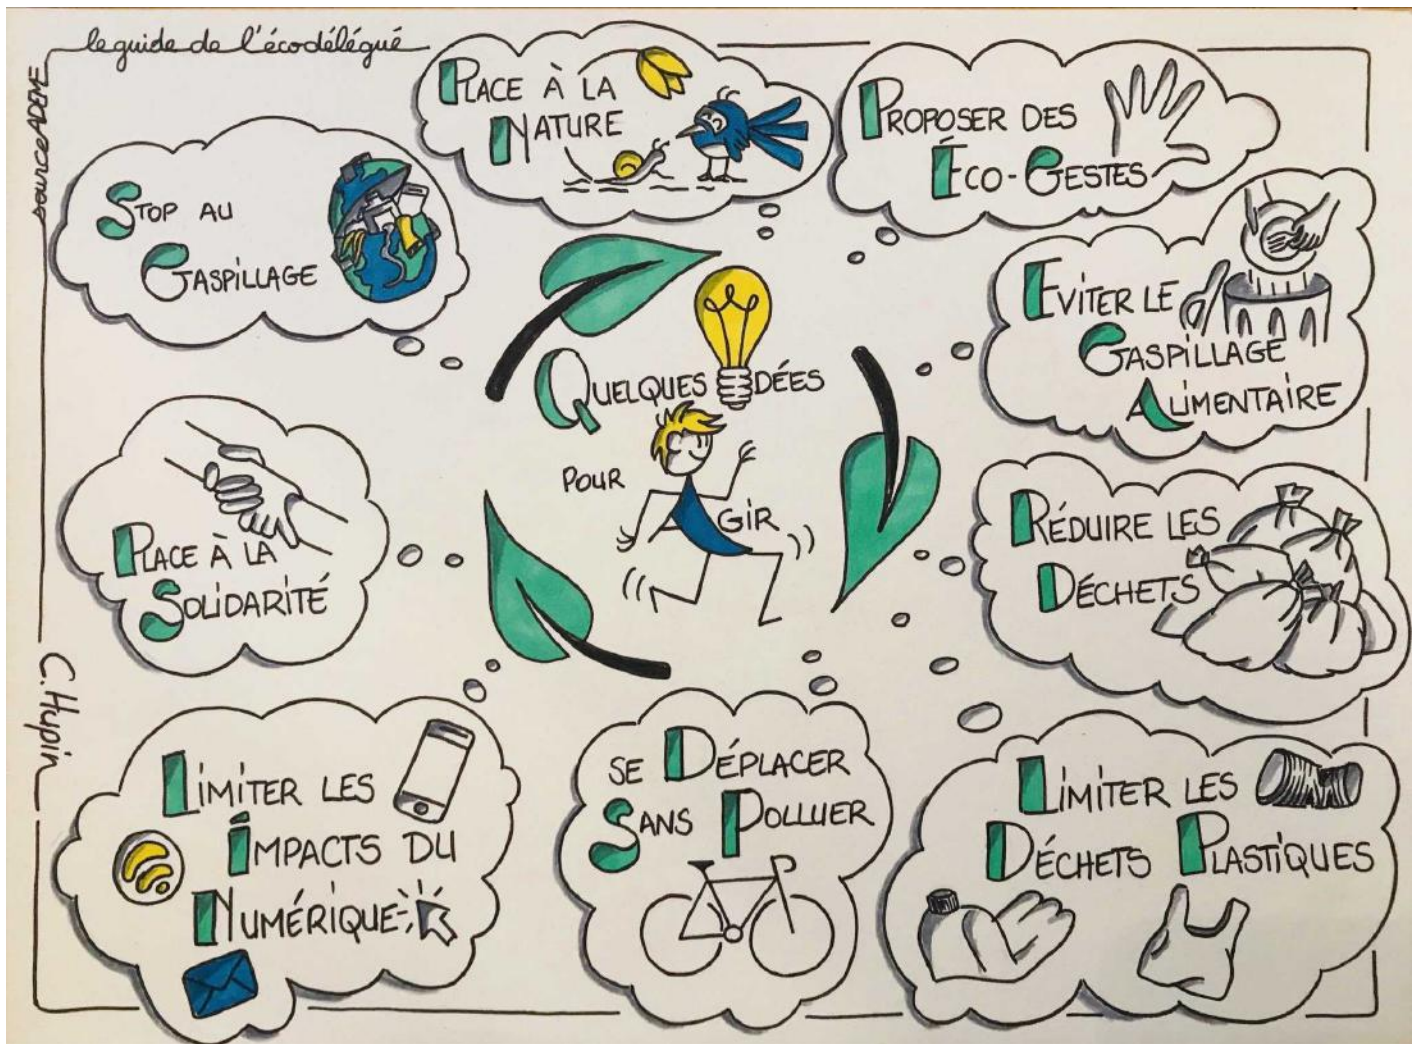 le guide de l'écodélégué
source ADEME
PLACE À LA
NATURE
PROPOSER DES
ÉCO-GESTES
STOP AU
GASPILLAGE
EVITER LE
GASPILLAGE
ALIMENTAIRE
QUELQUES IDÉES
POUR AGIR
PLACE À LA
SOLIDARITÉ
RÉDUIRE LES
DÉCHETS
LIMITER LES
IMPACTS DU
NUMÉRIQUE
SE DÉPLACER
SANS POLLUER
LIMITER LES
DÉCHETS PLASTIQUES